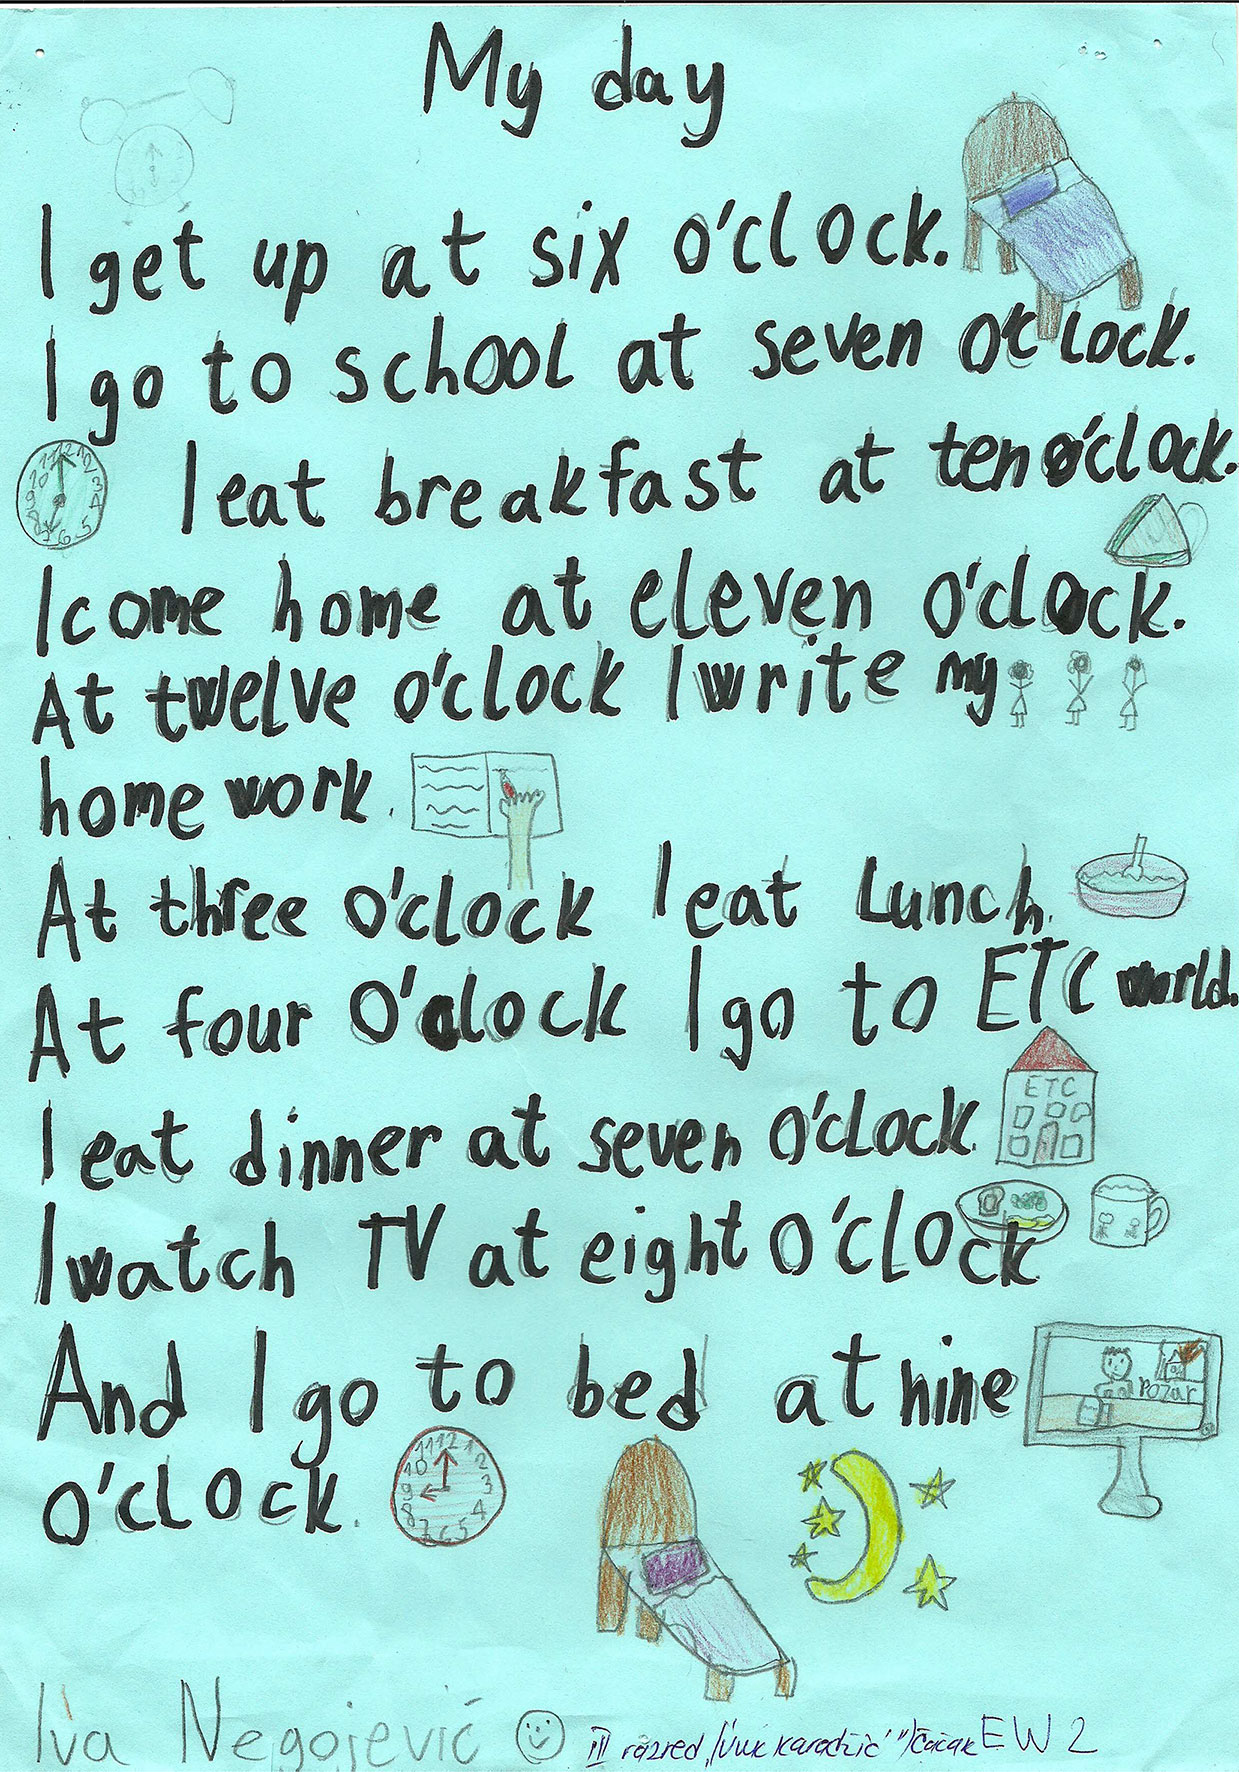 My day
I get up at six o'clock.
I go to school at seven o'clock.
I eat breakfast at ten o'clock.
I come home at eleven o'clock.
At twelve o'clock I write my
home work.
At three o'clock I eat Lunch.
At four O'clock I go to ETC world.
ETC
I eat dinner at seven O'clock.
I watch TV at eight O'clock
And I go to bed at nine
POŽAR
O'clock.
Iva Negojević
III razred "Vuk Karadžić" / Čačak EW 2